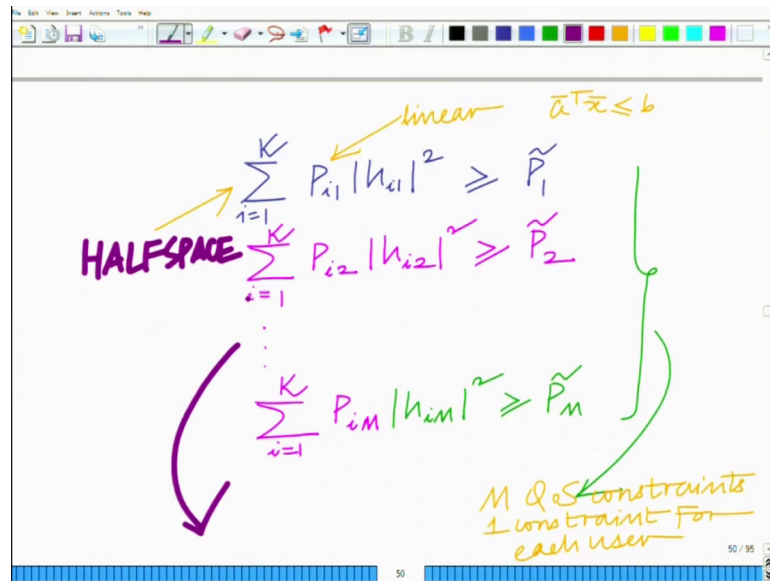 File Edit View Insert Actions Tools Help
linear  a̅ᵀx̅ ≤ b
K
∑ P_{i1} |h_{i1}|² ≥ P̃_1
i=1
HALFSPACE
K
∑ P_{i2} |h_{i2}|² ≥ P̃_2
i=1
K
∑ P_{iM} |h_{iM}|² ≥ P̃_M
i=1
M QoS constraints
1 constraint For
each user
50 / 95
50